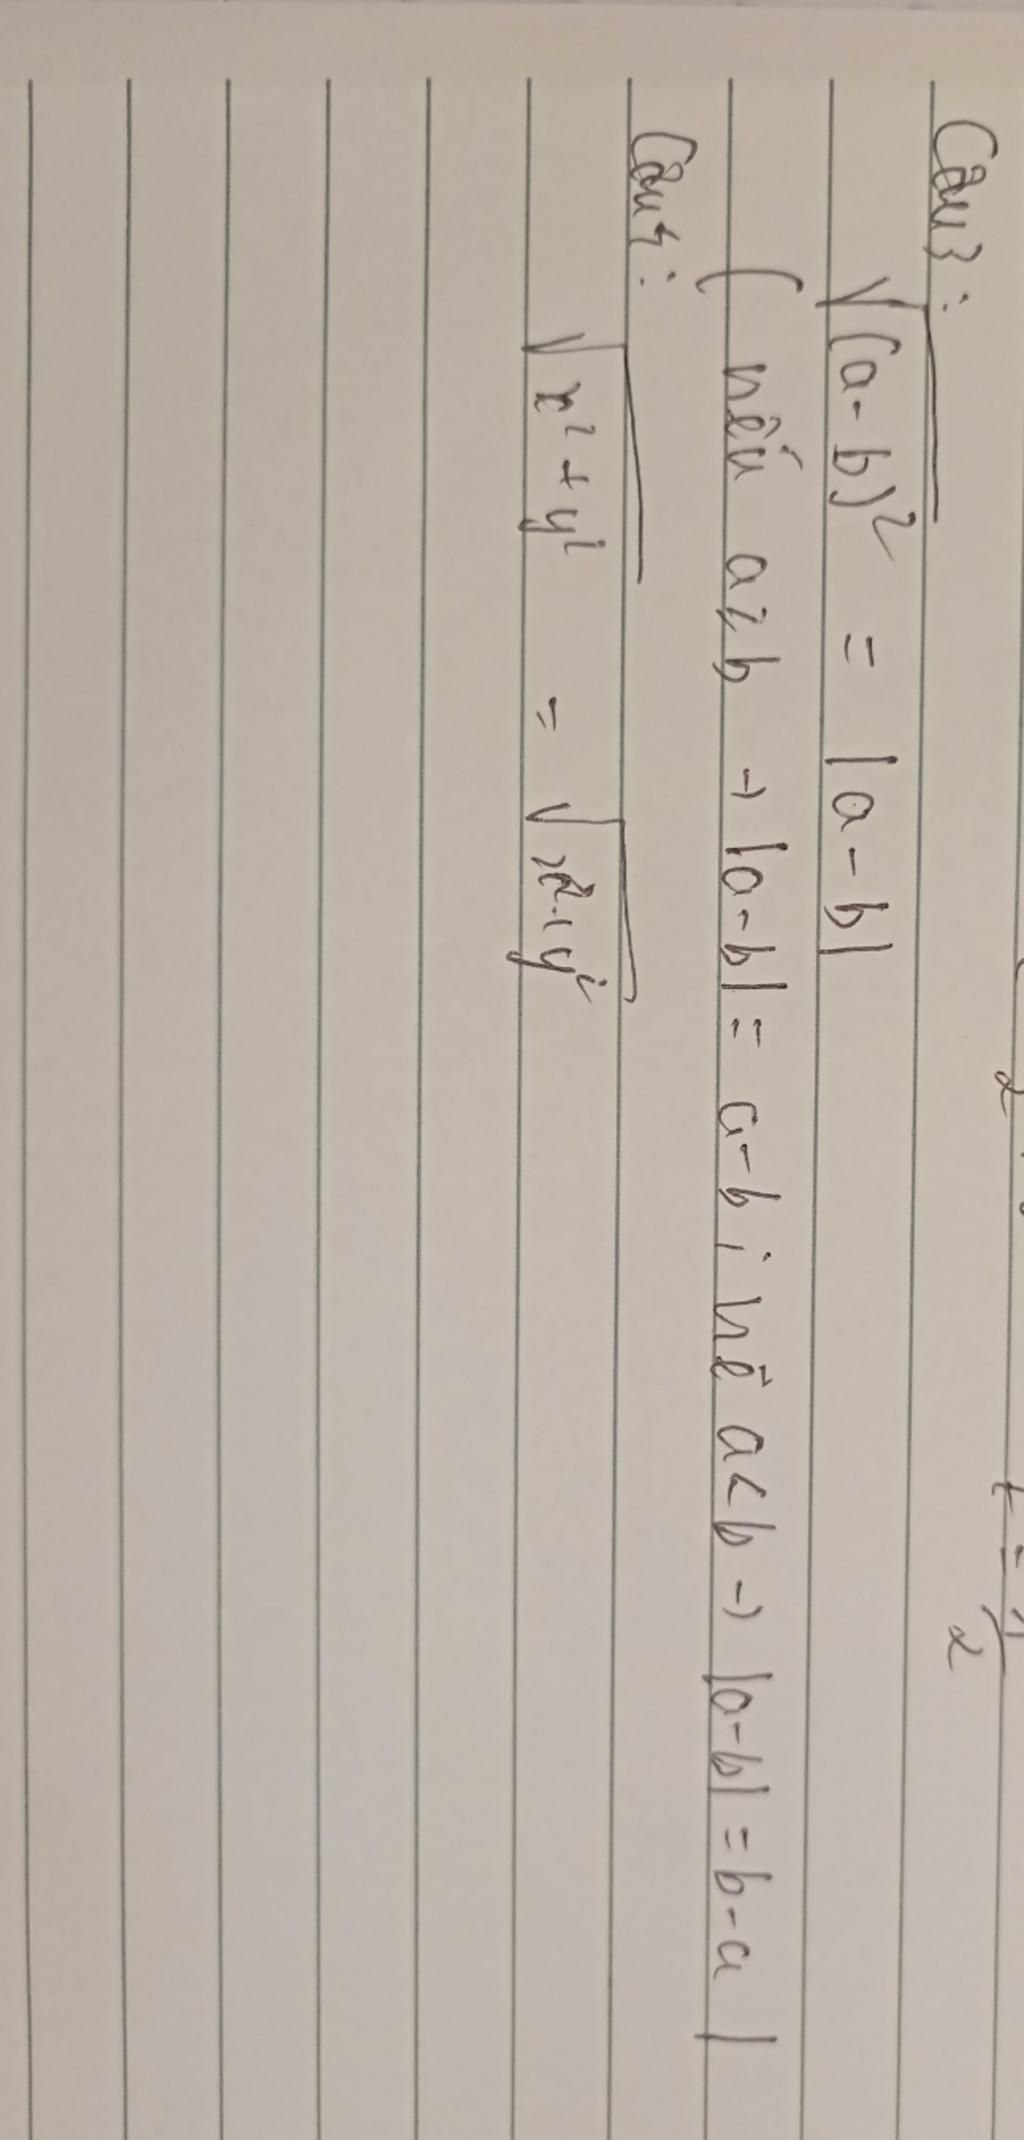 Câu 3 :
√(a-b)² = |a-b|
( nếu a≥b → |a-b| = a-b ; nế a<b → |a-b| = b-a )
Câu 4 :
√x²+y² = √x²+y²